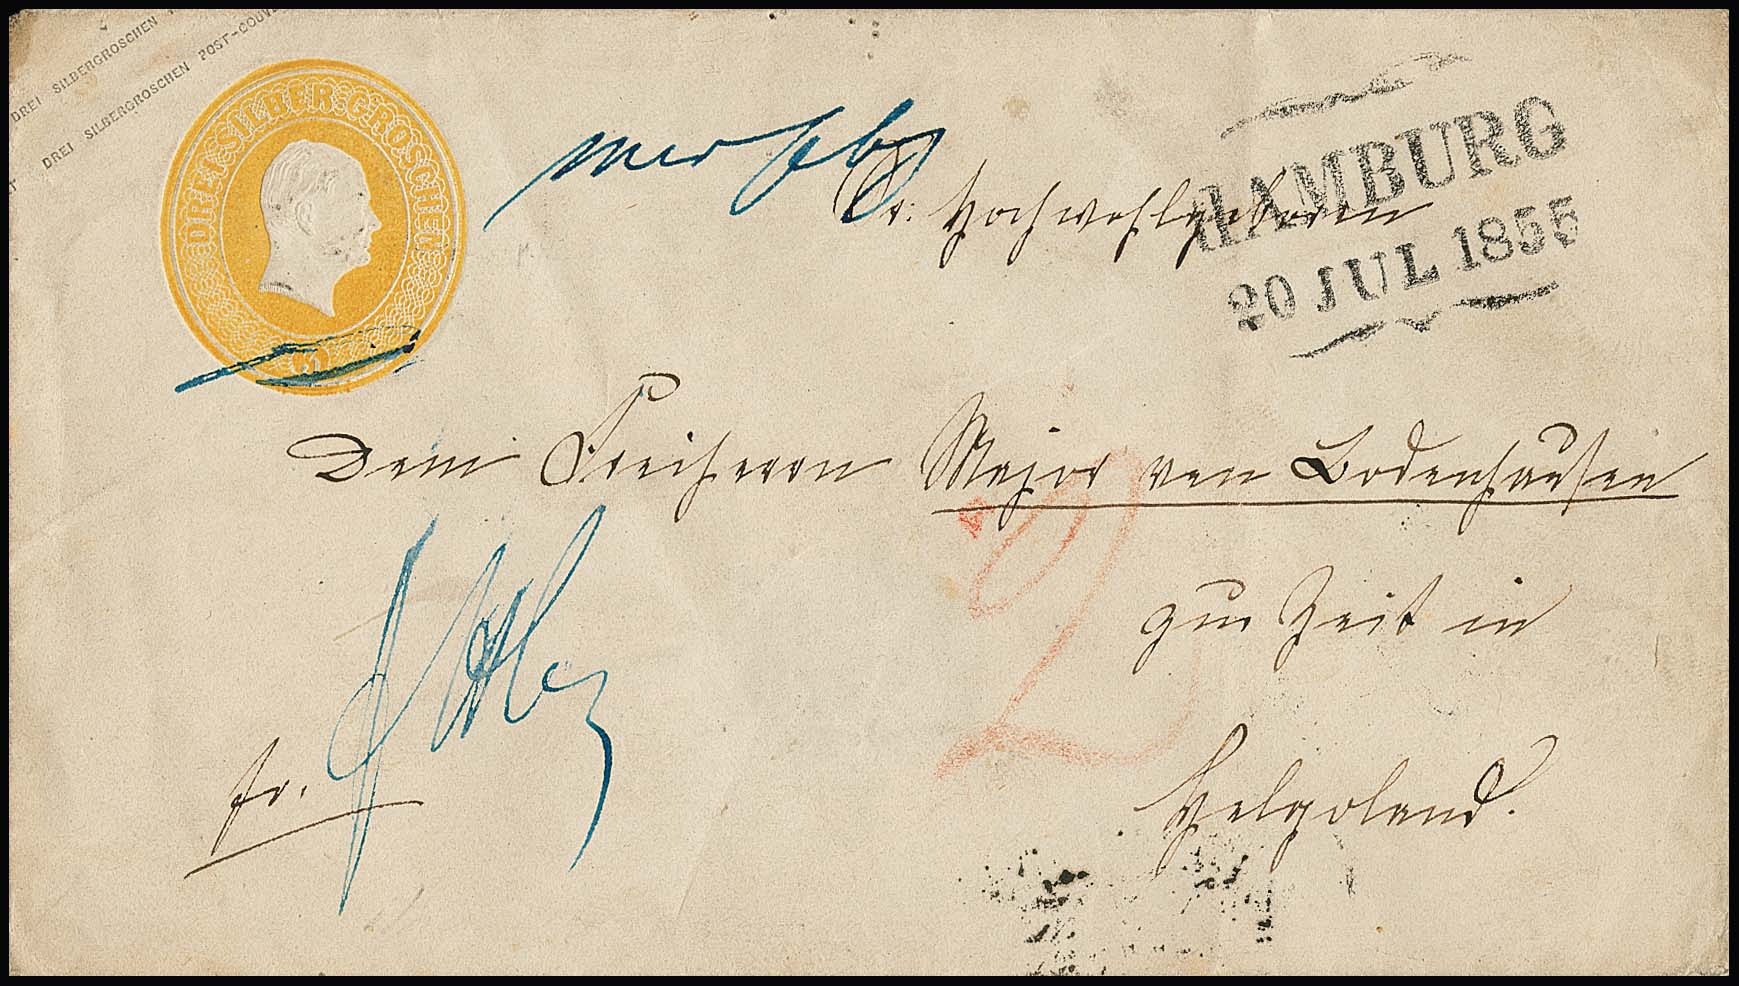 DREI SILBERGROSCHEN
DREI SILBERGROSCHEN POST-COUV
DREI SILBER GROSCHEN
3
HAMBURG
20 JUL 1855
Sr: Hochwohlgeboren
Dem Freiherrn Major von Bodenhausen
zur Zeit in
Helgoland.
fr.
2